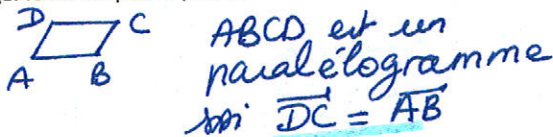 D C
A B
ABCD est un
paralélogramme
ssi DC = AB